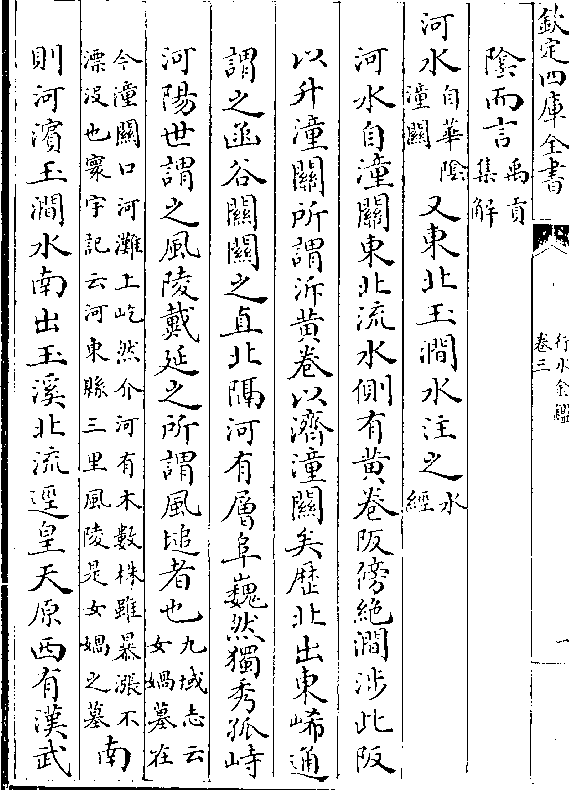 欽定四庫全書
行水金鑑
卷三
一
陰而言禹貢集解
河水自華陰潼關又東北玉澗水注之水經
河水自潼關東北流水側有黄巻阪傍絶澗渉此阪
以升潼關所謂泝黄巻以濟潼關矣歴北出東崤通
謂之函谷關關之直北隔河有層阜巍然獨秀孤峙
河陽世謂之風陵戴延之所謂風塠者也九域志云女媧墓在
今潼關口河灘上屹然介河有木數株雖暴漲不漂没也寰宇記云河東縣三里風陵是女媧之墓南
則河濱玉澗水南出玉溪北流逕皇天原西有漢武